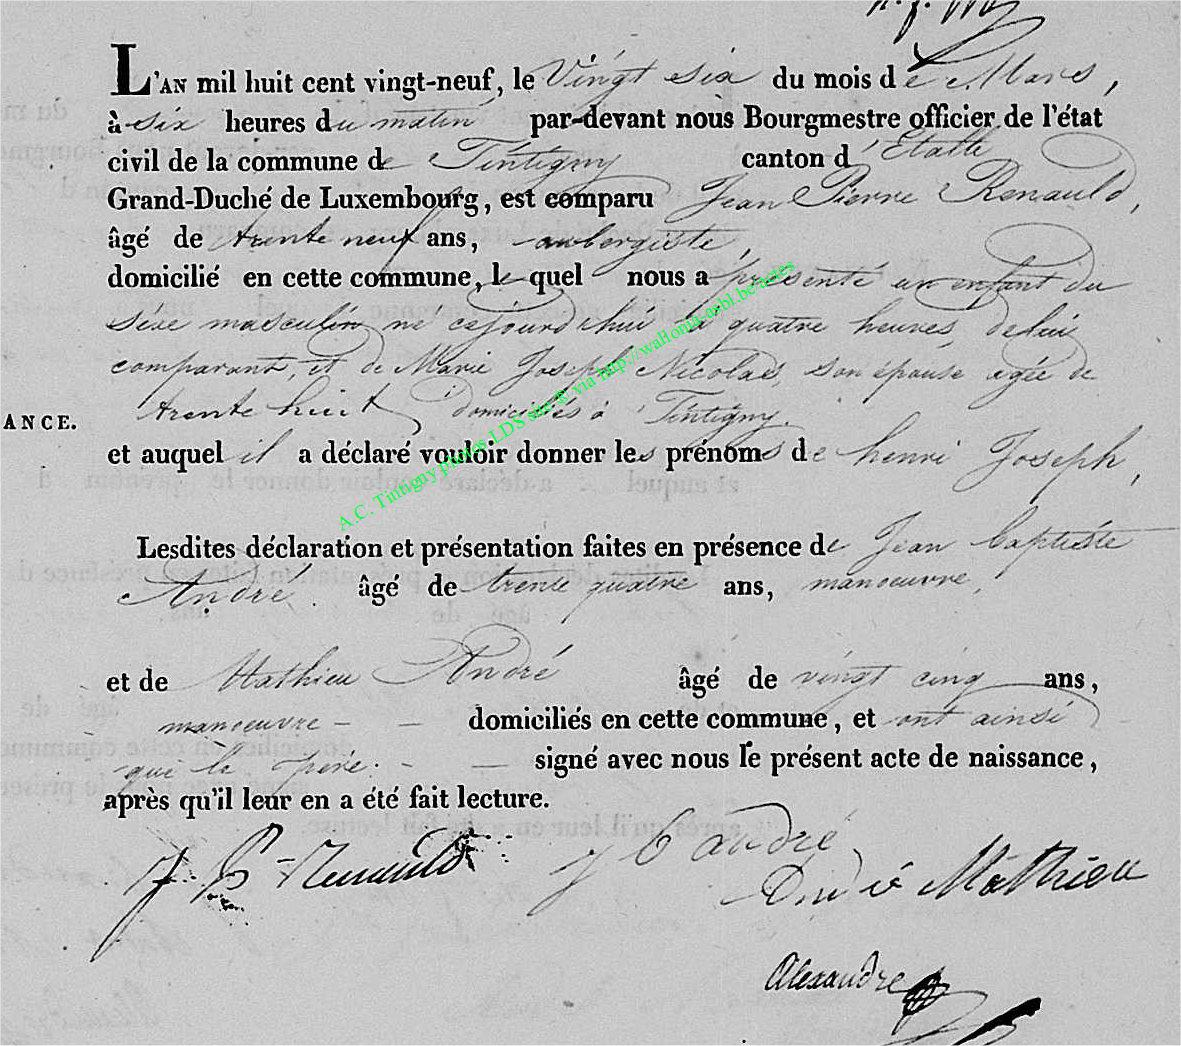 L'AN mil huit cent vingt-neuf, le Vingt six du mois de Mars,
à six heures du matin par-devant nous Bourgmestre officier de l'état
civil de la commune de Tintigny canton d'Etalle
Grand-Duché de Luxembourg, est comparu Jean Pierre Renauld,
âgé de trente neuf ans, aubergiste,
domicilié en cette commune, le quel nous a présenté un enfant du
sexe masculin né cejourd'hui à quatre heures, de lui
comparant, et de Marie Joseph Nicolas, son épouse agée de
ANCE.
trente huit domiciliés à Tintigny.
et auquel il a déclaré vouloir donner les prénoms de henri Joseph,
A.C. Tintigny photos LDS site & via http://wallonia-asbl.be/actes
Lesdites déclaration et présentation faites en présence de Jean baptiste
André. âgé de trente quatre ans, manoeuvre,
et de Mathieu André âgé de vingt cinq ans,
manoeuvre - - domiciliés en cette commune, et ont ainsi
que le père. - - signé avec nous le présent acte de naissance,
après qu'il leur en a été fait lecture.
J P Renauld J b andré
André Mathieu
Alexandre